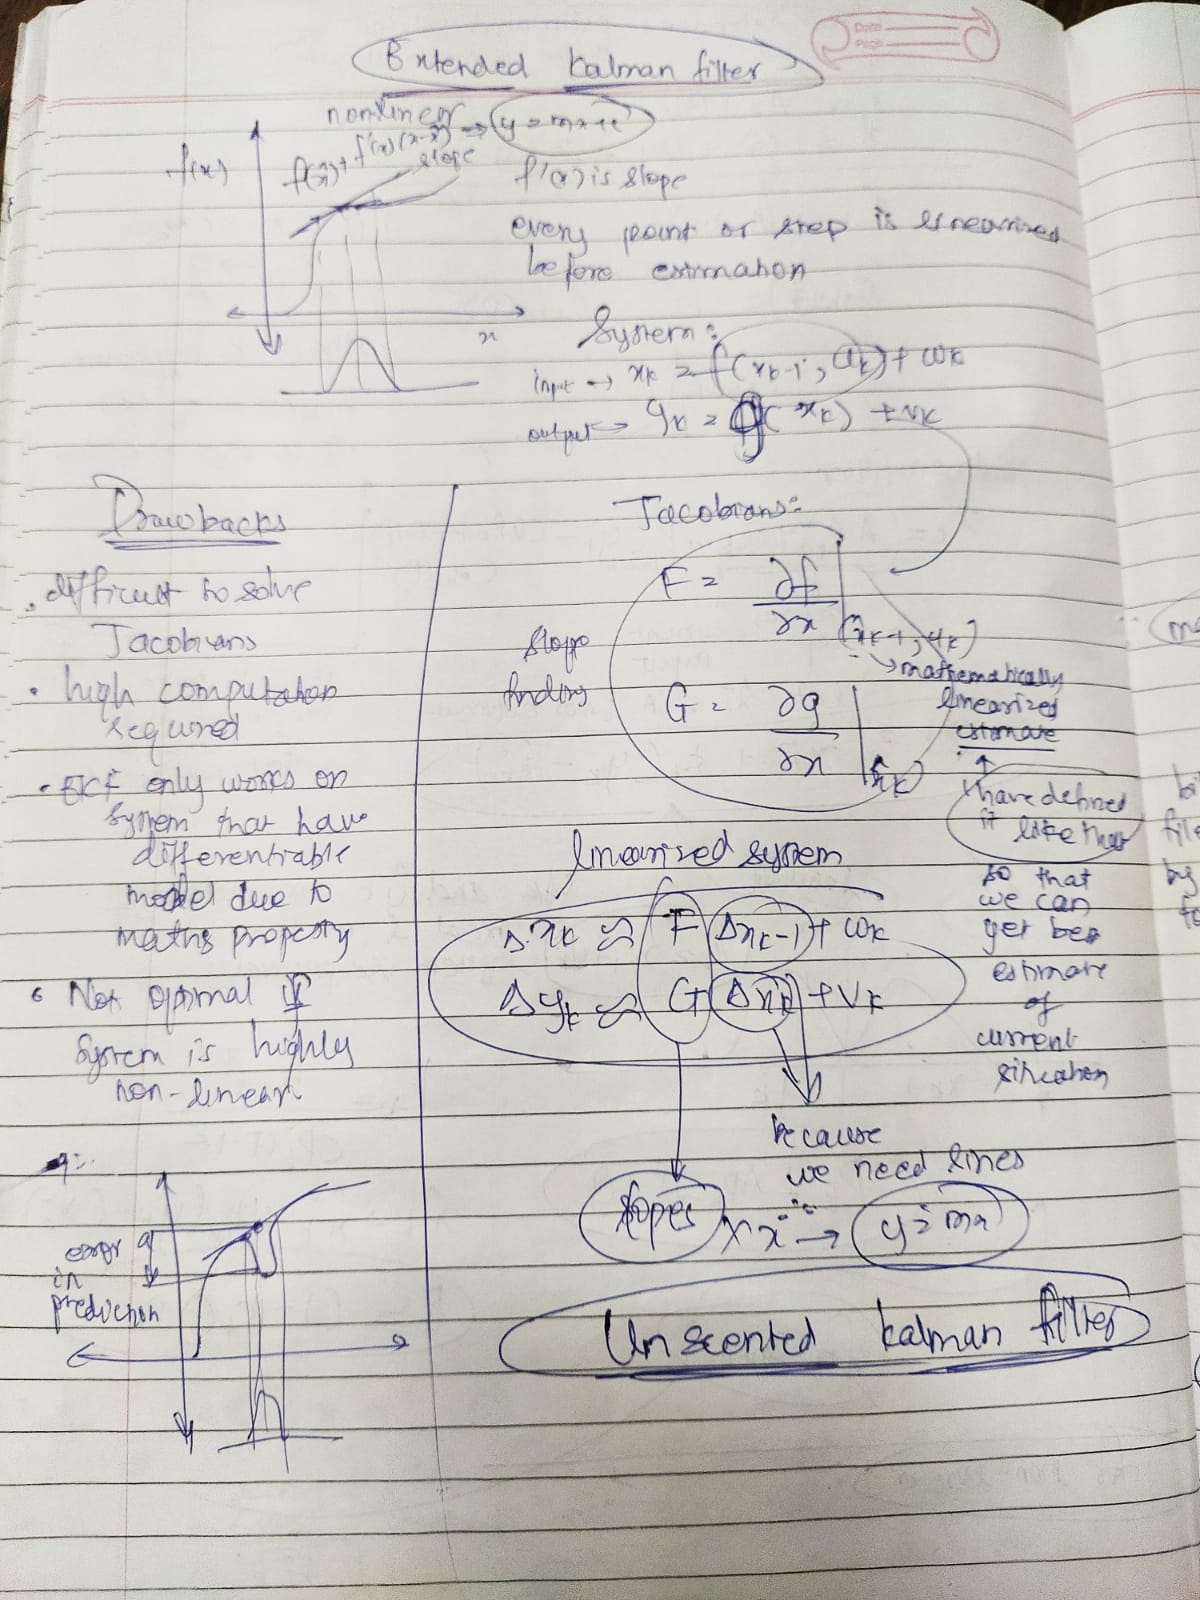 Date
Page
Extended Kalman filter
nonlinear → y = mx + c
f(x)
f(x̂) + f'(x)(x-x̂)
slope
f'(x) is slope
every point or step is linearized
before estimation
x
System:
input → xk = f(xk-1, uk) + wk
output → yk = g(xk) + vk
Drawbacks
. difficult to solve
Jacobians
• high computation
required
• EKF only works on
system that have
differentiable
model due to
maths property
• Not optimal if
system is highly
non-linear
error
in
prediction
Jacobians:
F = ∂f/∂x | (x̂k-1, uk)
slope
finding
→ mathematically
linearized
estimate
G = ∂g/∂x | x̂k
I have defined
it like that
so that
we can
get best
estimate
of
current
situation
linearized system
Δxk ≈ F Δxk-1 + wk
Δyk ≈ G Δxk + vk
because
we need lines
slopes x x → y = mx
Unscented kalman filter